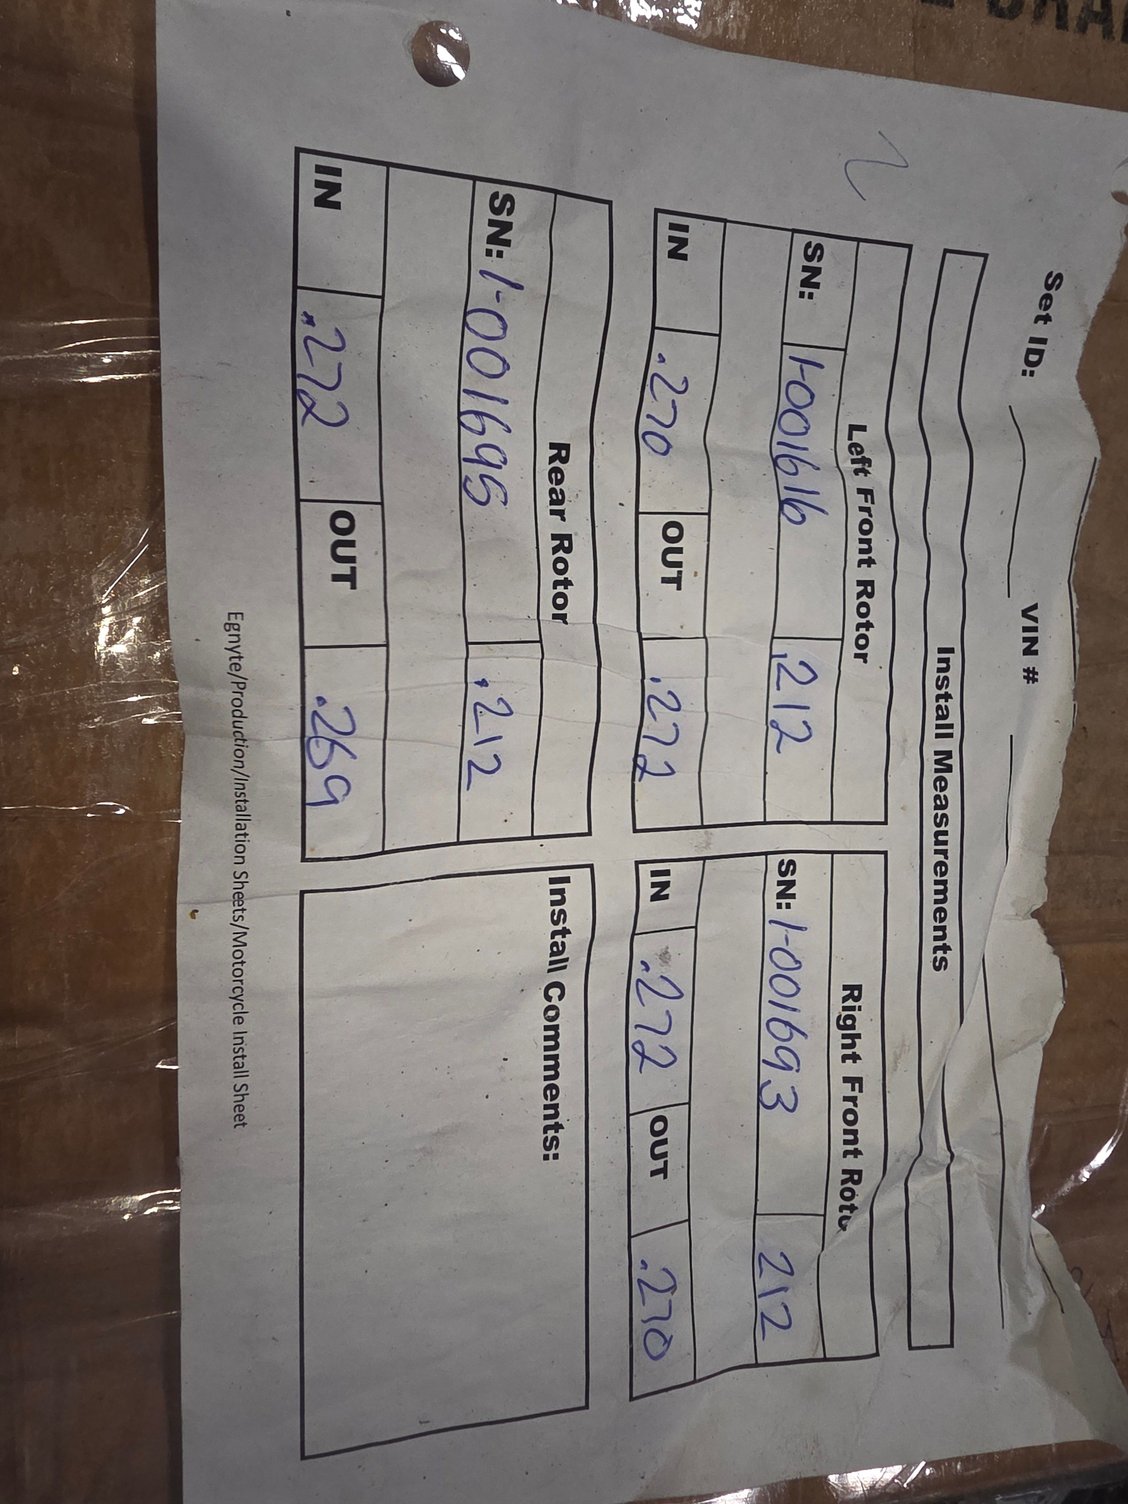 Set ID: VIN #
Install Measurements
Left Front Rotor
SN: 1-001616 .212
IN .270 OUT .272
Right Front Roto
SN: 1-001693 212
IN .272 OUT .270
Rear Rotor
SN: 1-001695 .212
IN .272 OUT .269
Install Comments:
Egnyte/Production/Installation Sheets/Motorcycle Install Sheet